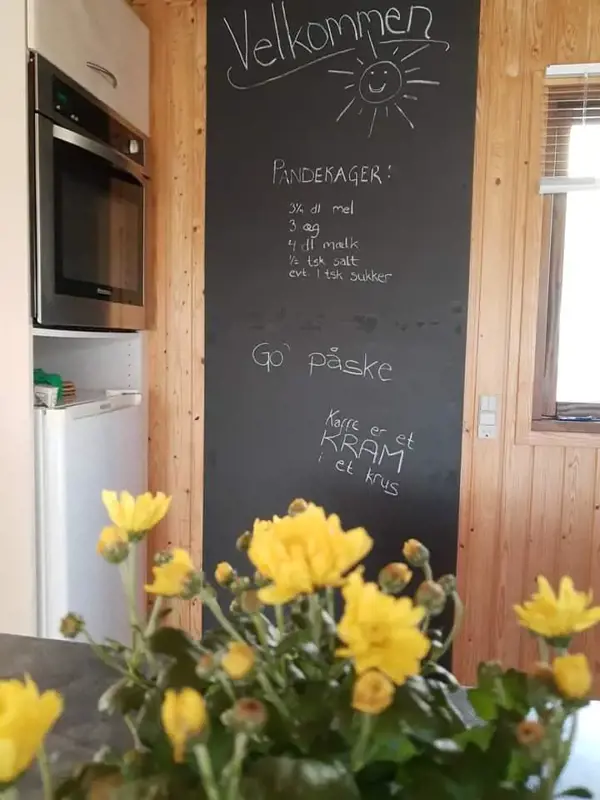 Velkommen
PANDEKAGER:
3¾ dl mel
3 æg
4 dl mælk
½ tsk salt
evt 1 tsk sukker
Go' påske
Kaffe er et
KRAM
i et krus